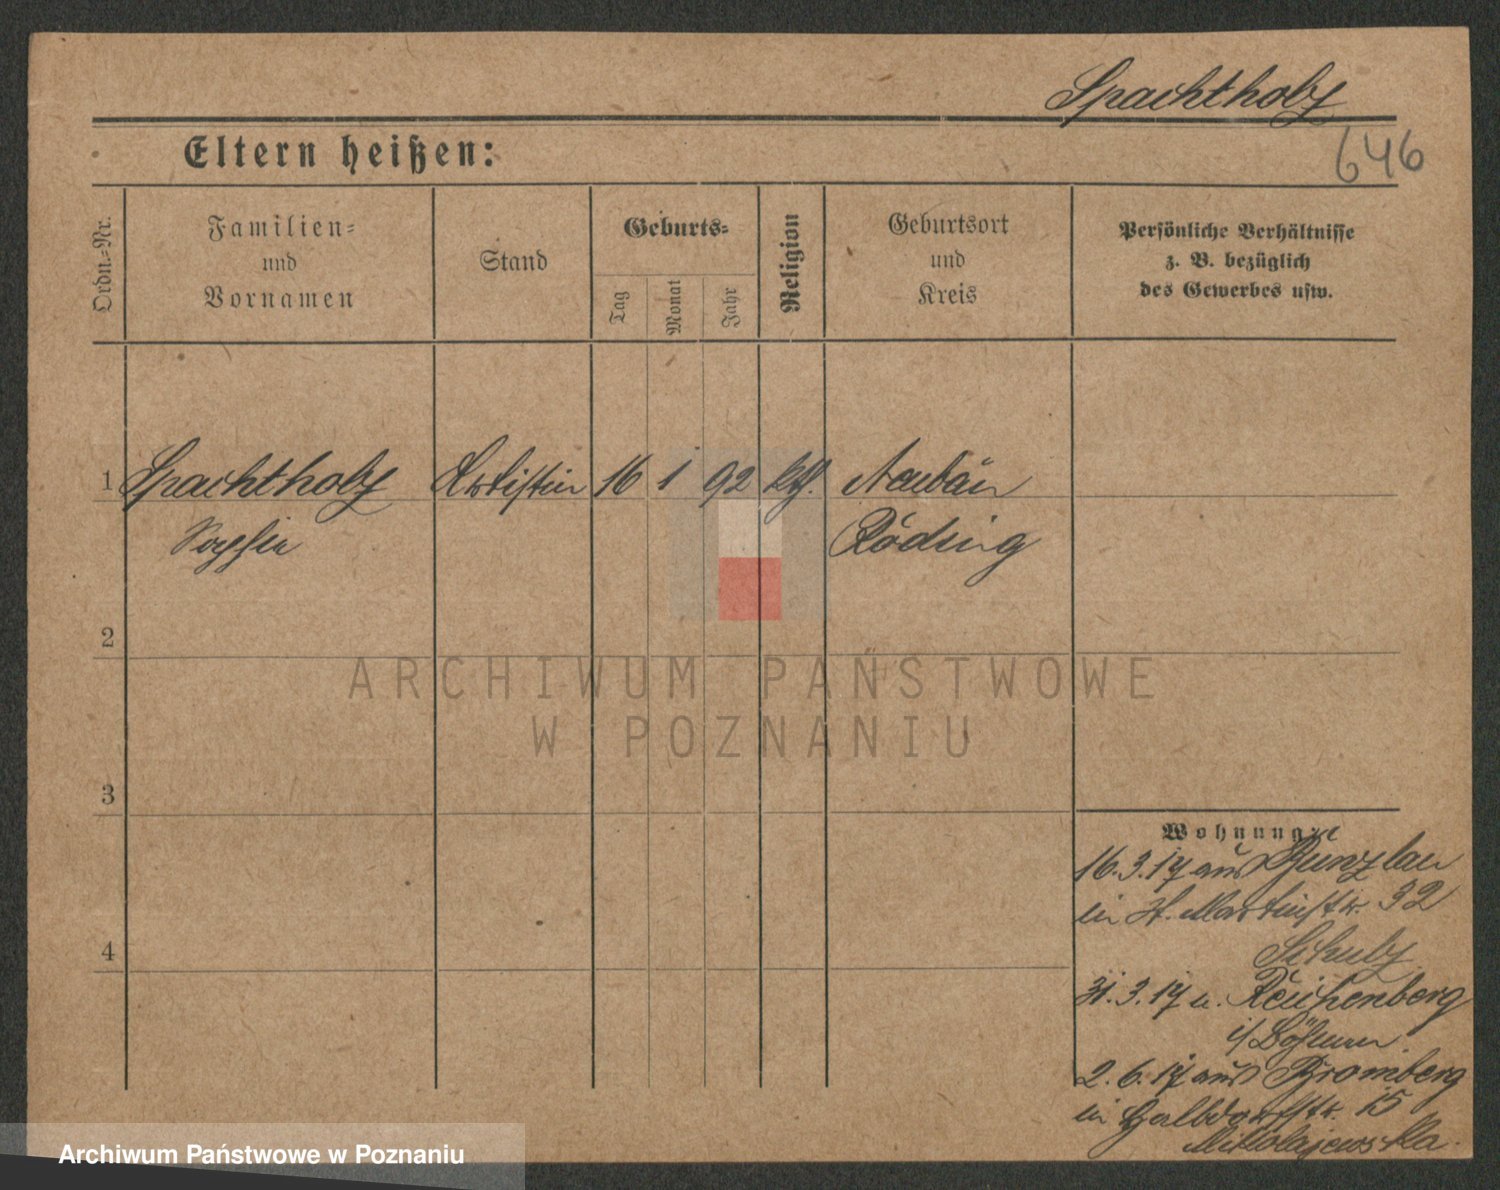 Spachtholz
646
Eltern heißen:
Ordn.-Nr.
Familien-
und
Vornamen
Stand
Geburts-
Tag
Monat
Jahr
Religion
Geburtsort
und
Kreis
Persönliche Verhältnisse
z. B. bezüglich
des Gewerbes usw.
1 Spachtholz Artistin 16 1 92 kth. Neubäu
Sophie Röding
2
3
4
Wohnung:
16.3.17 aus Bunzlau
in St. Martinstr. 32
Schulz
31.3.17 n. Reichenberg
i/Böhmen.
2.6.17 aus Bromberg
in Halbdorfstr. 15
Mikolajewska.
ARCHIWUM PAŃSTWOWE
W POZNANIU
Archiwum Państwowe w Poznaniu